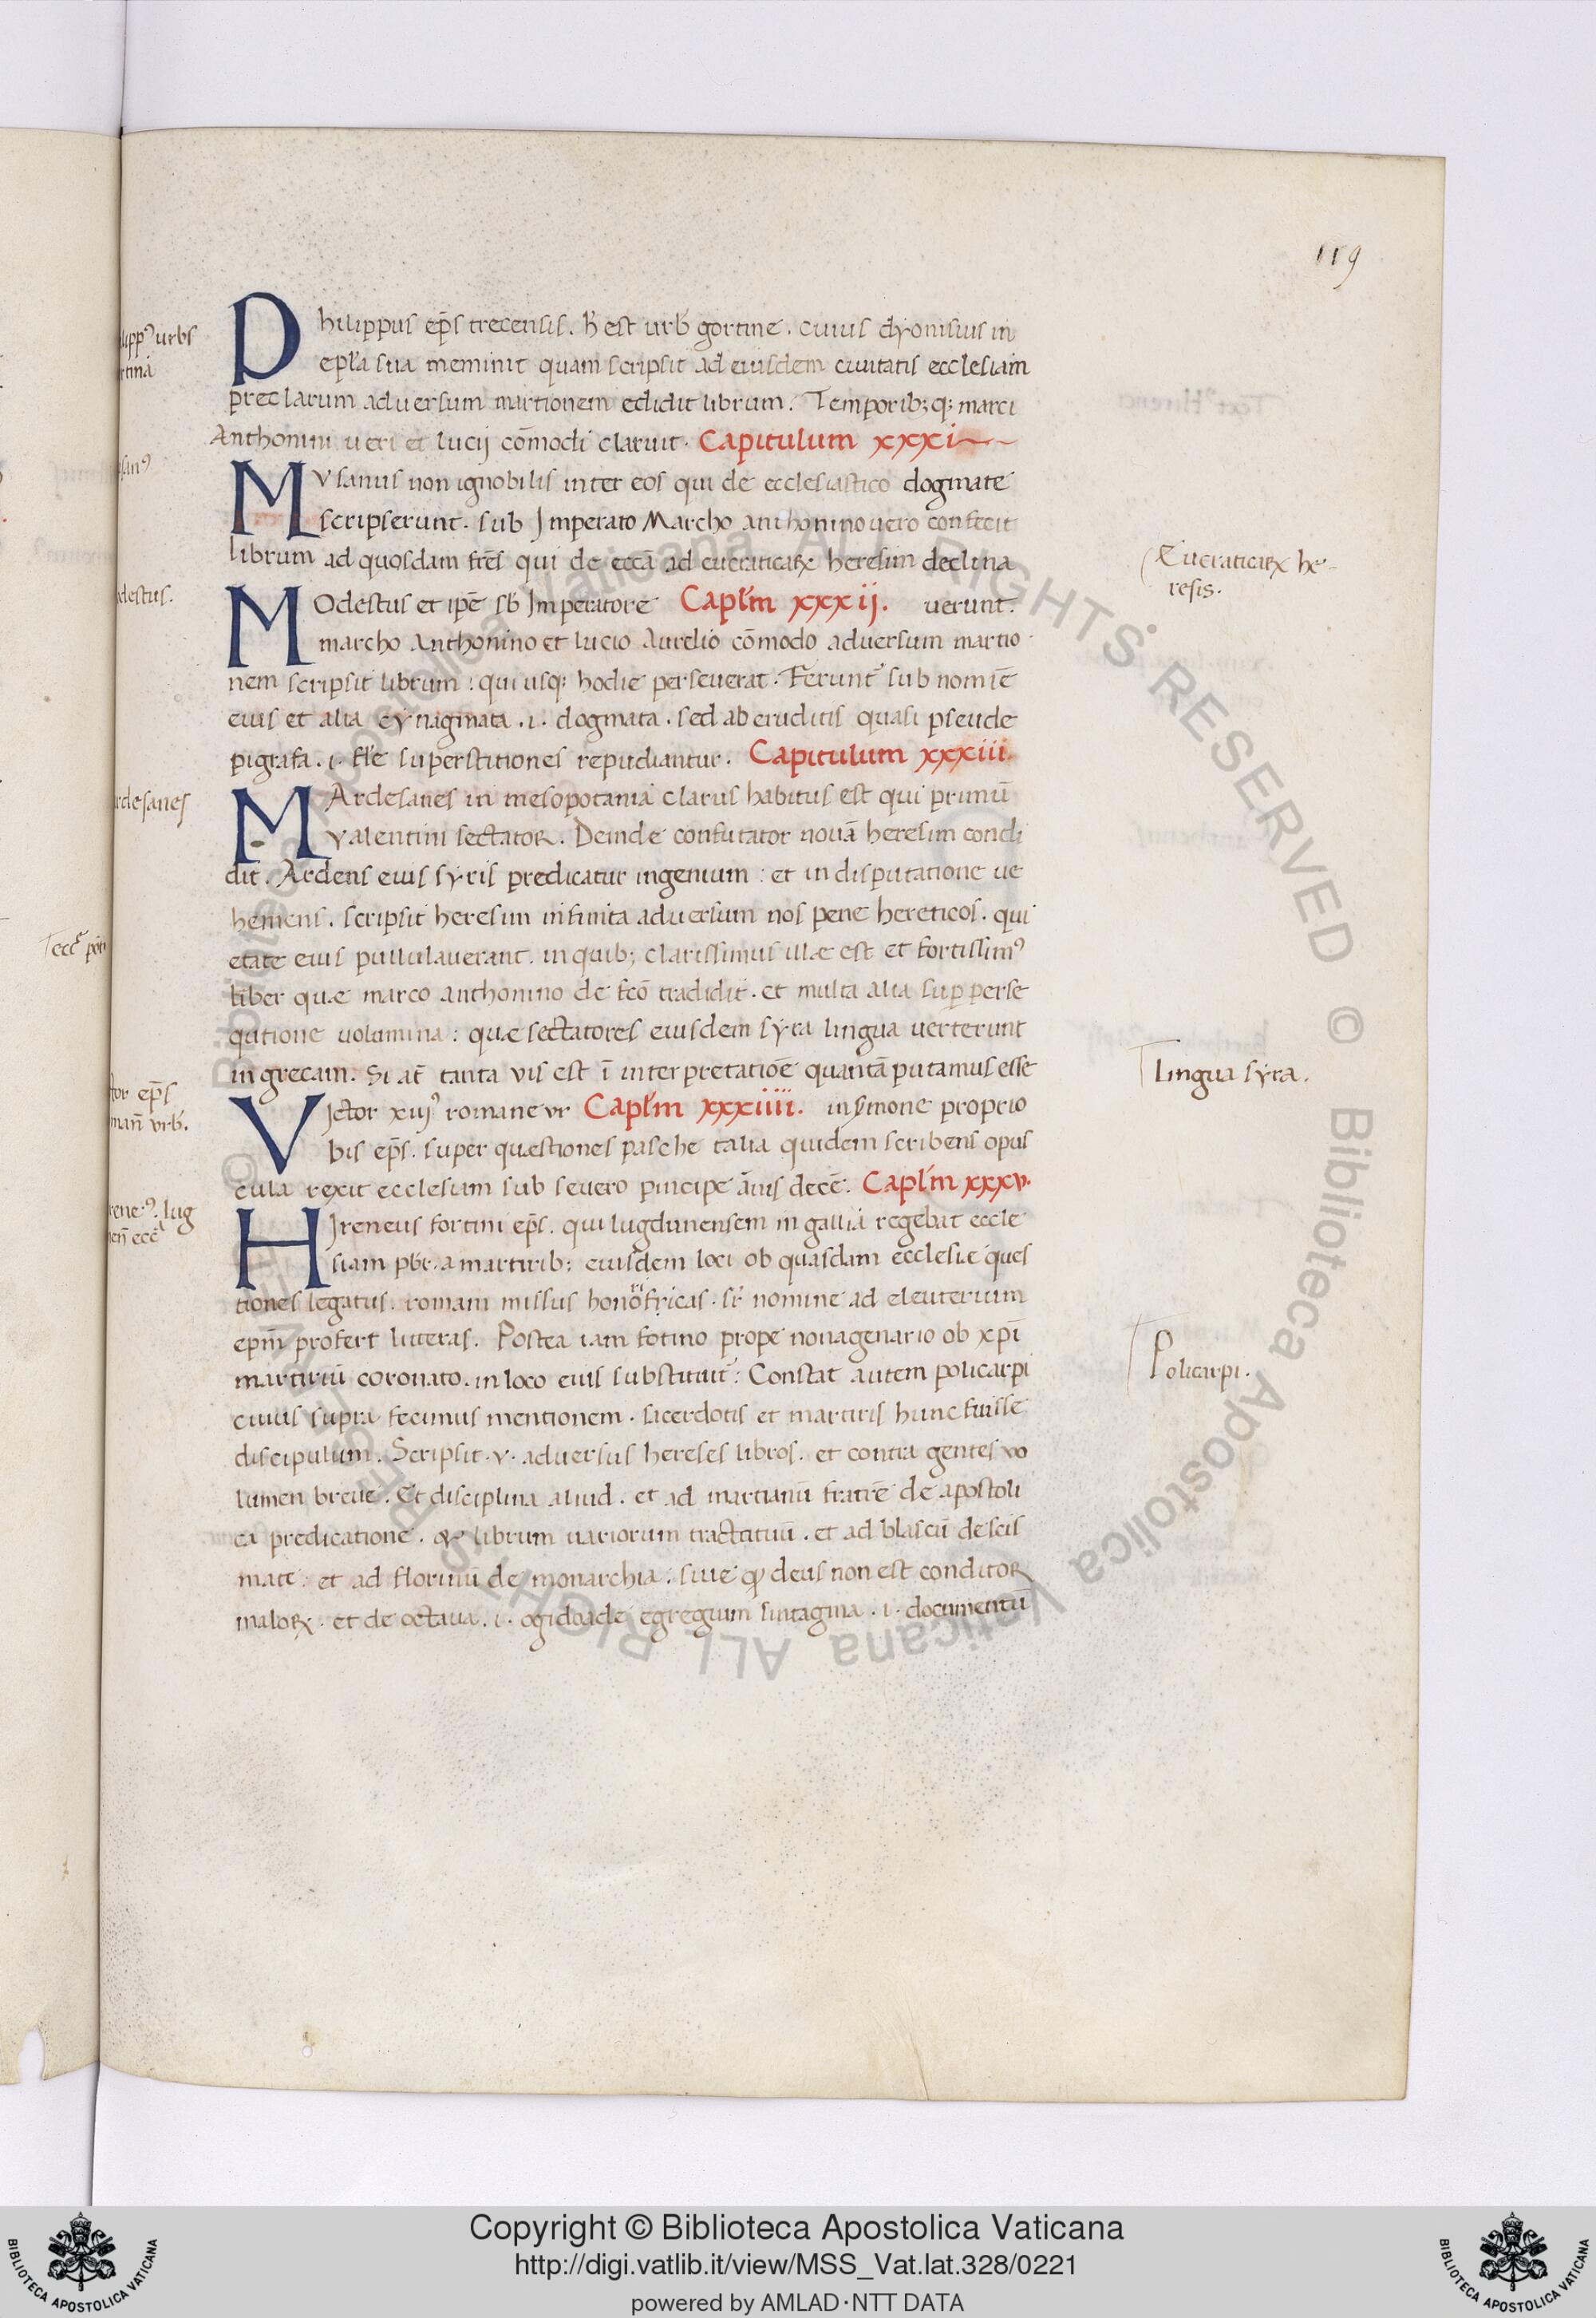 119
Philippus ep̄s trecensis. h̄ est urb̄ gortine. cuius dyonisius in
epl̄a sua meminit quam scripsit ad euisdem ciuitatis ecclesiam
preclarum aduersum martionem edidit librum. Temporib; q; marci
Anthonini ueri et lucij cōmodi claruit. Capitulum xxxi
MVsanus non ignobilis inter eos qui de ecclesiastico dogmate
scripserunt. sub Imperato Marcho anthonino uero confecit
librum ad quosdam frēs qui de eccā ad eueraticaꝝ heresim declina
MOdestus et ipē sb̄ Imperatore Capl̄m xxxij. uerunt.
marcho Anthonino et lucio Aurelio cōmodo aduersum martio
nem scripsit librum: qui usq; hodie perseuerat. Ferunt᷑ sub nomīe
eius et alia cynagmata .i. dogmata. sed ab eruditis quasi pseude
pigrafa .i. fl̄e superstitiones repudiantur. Capitulum xxxiii.
MArdesanes in mesopotamia clarus habitus est qui primū
Valentini sectator. Deinde confutator nouā heresim condi
dit. Ardens eius syris predicatur ingenium: et in disputatione ue
hemens. scripsit heresim infinita aduersum nos pene hereticos. qui
etate eius pullulauerant. in quib; clarissimus illæ est et fortissimꝰ
liber quæ marco anthonino de fcō tradidit. et multa alia sup perse
qutione uolumina: quæ sectatores euisdem syra lingua uerterunt
in grecam. Si at̄ tanta vis est ī interpretatiōe quantā putamus esse
VIctor xiijꝰ romane vr Capl̄m xxxiiii. in s̄mone proprio
bis ep̄s. super quæstiones pasche talia quidem scribens opus
cula rexit ecclesiam sub seuero principe āuis decē. Capl̄m xxxv.
HIreneus fortini ep̄s. qui lugdunensem in gallia regebat eccle
siam pb̄r. a martirib; euisdem loci ob quasdam ecclesiæ ques
tiones legatus. romam missus honōfricas. sr̄ nomine ad eleuterium
ep̄m profert litteras. Postea iam fotino prope nonagenario ob xp̄i
martiriū coronato. in loco eius substituit᷑: Constat autem policarpi
cuius supra fecimus mentionem. sacerdotis et martiris hunc fuisse
discipulum. Scripsit .v. aduersus hereses libros. et contra gentes vo
lumen breue. Et disciplina aliud. et ad martianū fratrē de apostoli
ca predicatione. q; librum uariorum tractituū. et ad blascū de scis
mate: et ad florinū de monarchia. siue ꝙ deus non est conditor
maloꝝ. et de octaua .i. ogidoade egregium sintagma .i. documentū
Eueraticaꝝ he-
resis.
Lingua syra.
Policarpi.
destus.
rdesanes
tor ep̄s
man̄ vrb̄.
reneꝰ. lug
Copyright © Biblioteca Apostolica Vaticana
http://digi.vatlib.it/view/MSS_Vat.lat.328/0221
powered by AMLAD·NTT DATA
BIBLIOTECA APOSTOLICA VATICANA
BIBLIOTECA APOSTOLICA VATICANA
© Biblioteca Apostolica Vaticana ALL RIGHTS RESERVED © Biblioteca Apostolica Vaticana ALL RIGHTS RESERVED